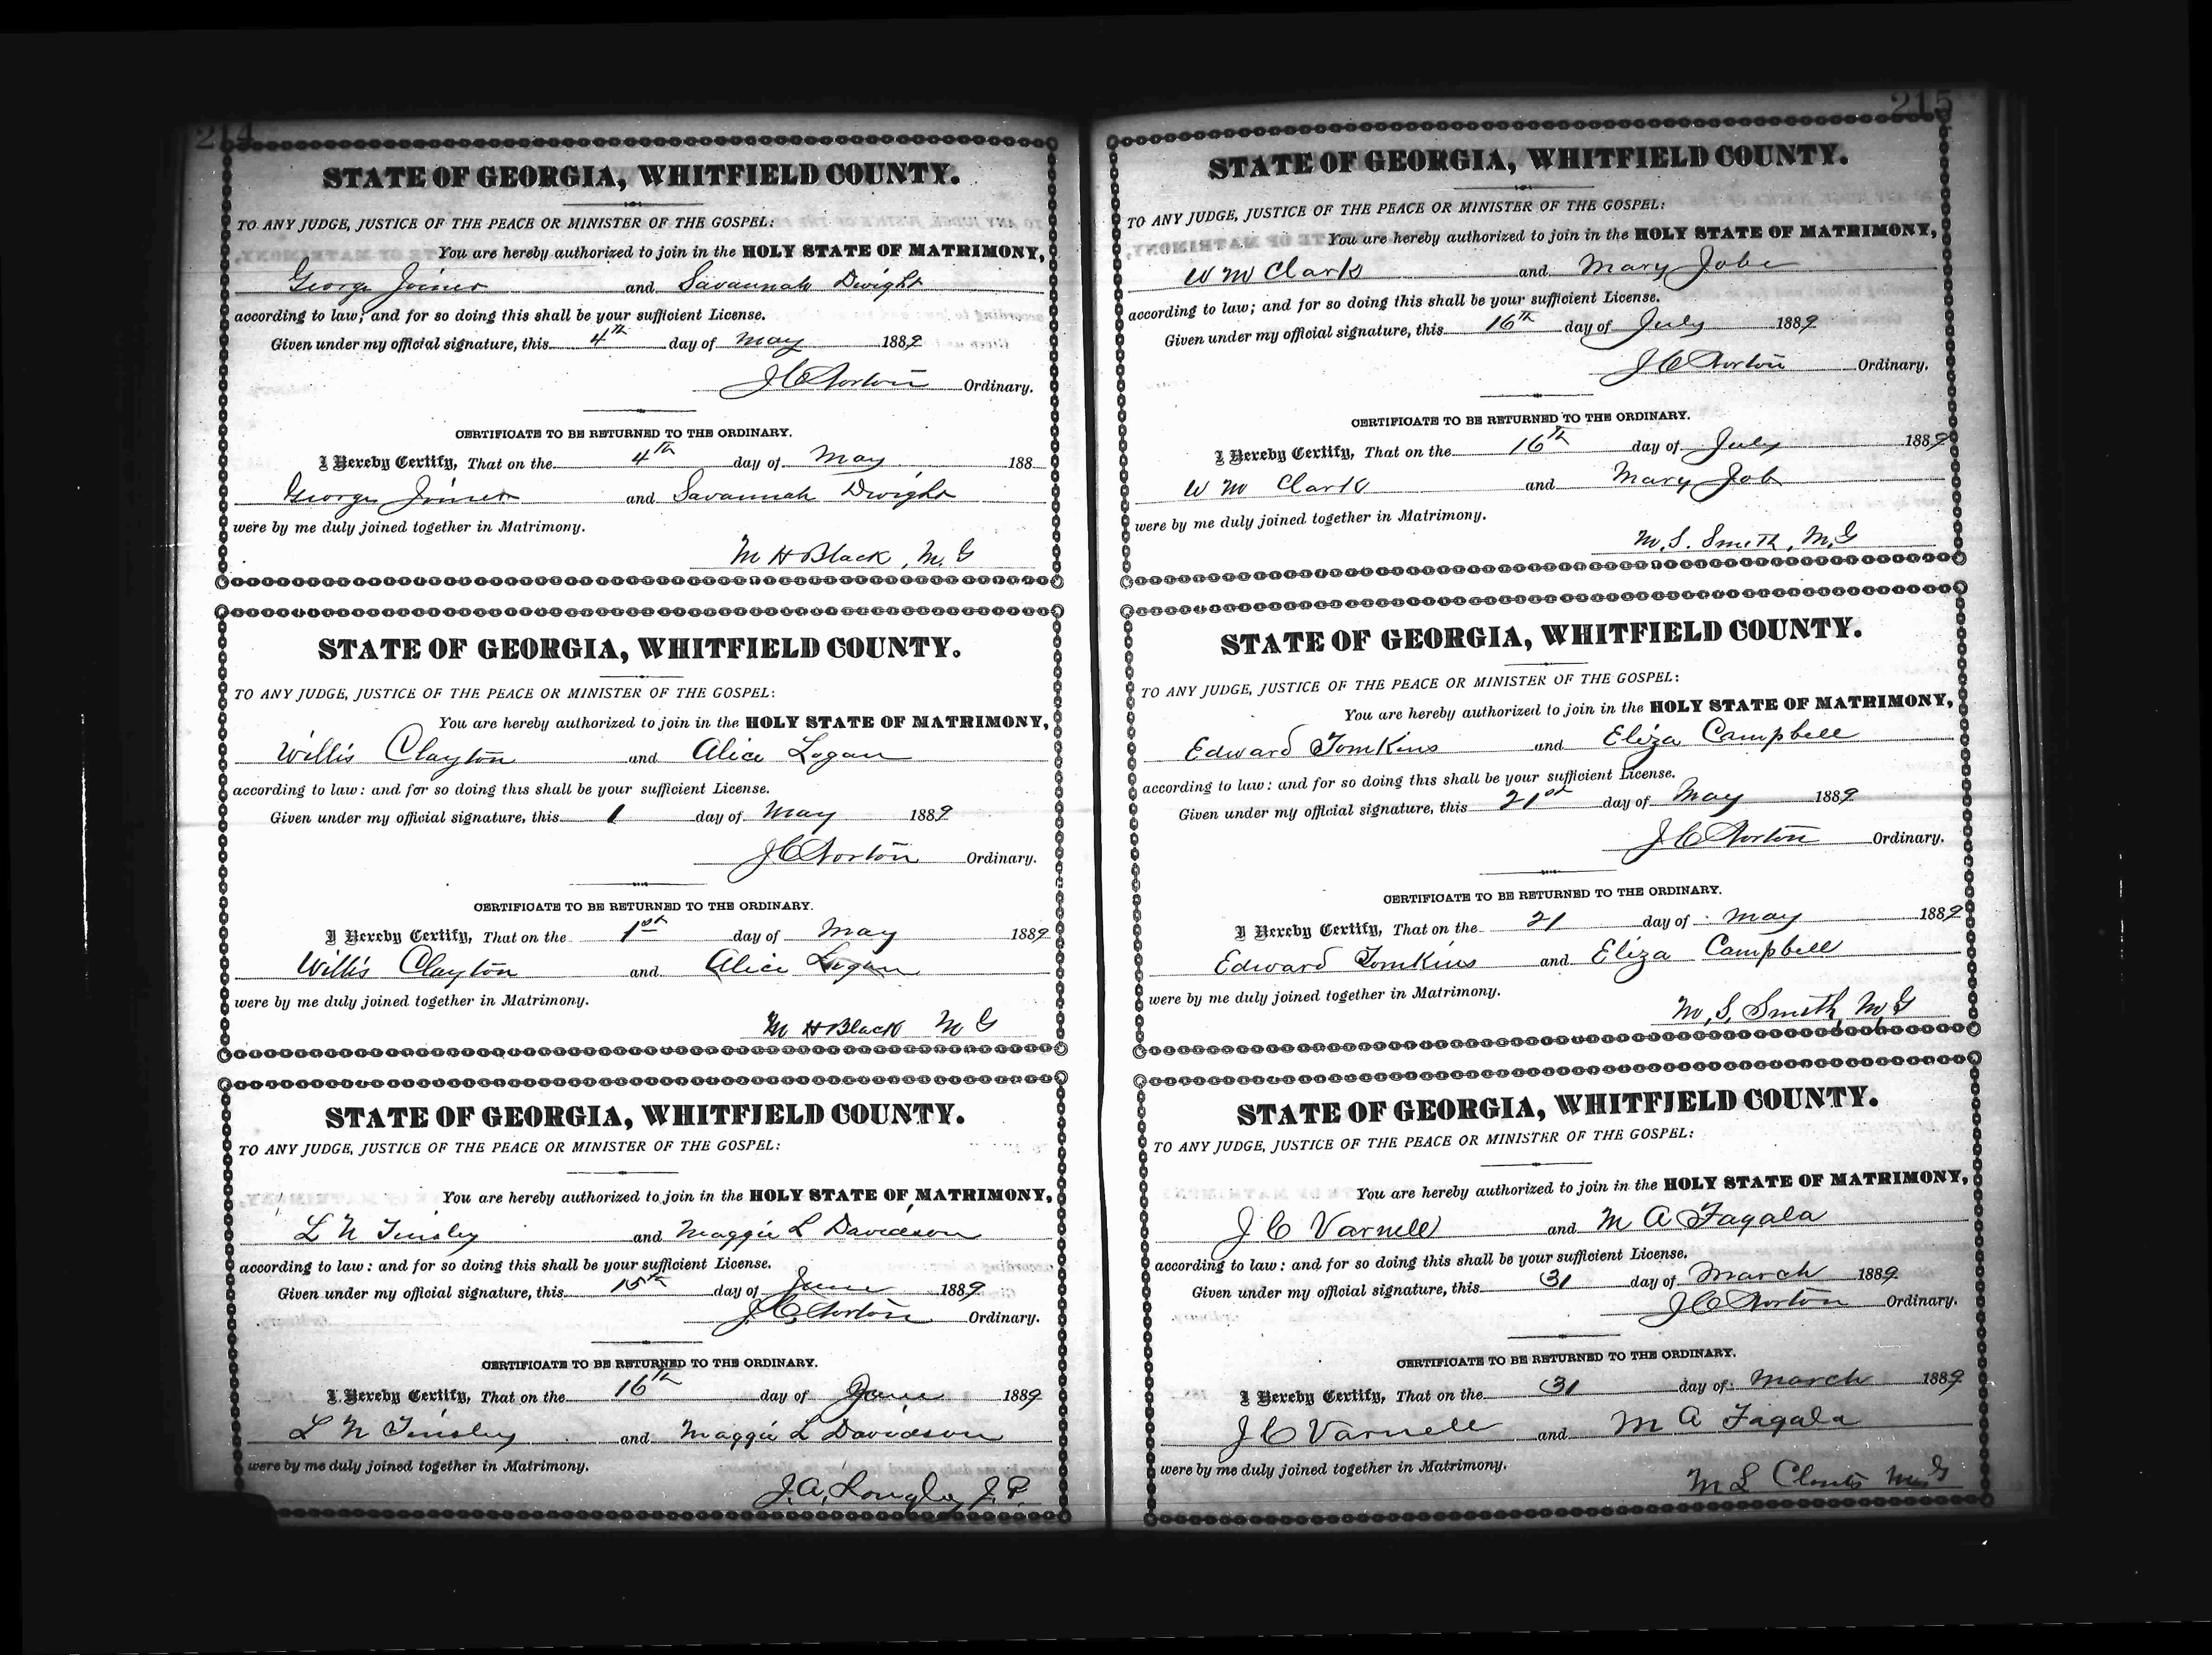 214
STATE OF GEORGIA, WHITFIELD COUNTY.
TO ANY JUDGE, JUSTICE OF THE PEACE OR MINISTER OF THE GOSPEL:
You are hereby authorized to join in the HOLY STATE OF MATRIMONY,
George Joiner and Savannah Dwight
according to law; and for so doing this shall be your sufficient License.
Given under my official signature, this 4th day of May 1889
J C Norton Ordinary.
CERTIFICATE TO BE RETURNED TO THE ORDINARY.
I Hereby Certify, That on the 4th day of May 188
George Joiner and Savannah Dwight
were by me duly joined together in Matrimony.
M H Black, M. G
STATE OF GEORGIA, WHITFIELD COUNTY.
TO ANY JUDGE, JUSTICE OF THE PEACE OR MINISTER OF THE GOSPEL:
You are hereby authorized to join in the HOLY STATE OF MATRIMONY,
Willis Clayton and Alice Logan
according to law: and for so doing this shall be your sufficient License.
Given under my official signature, this 1 day of May 1889
J C Norton Ordinary.
CERTIFICATE TO BE RETURNED TO THE ORDINARY.
I Hereby Certify, That on the 1st day of May 1889
Willis Clayton and Alice Logan
were by me duly joined together in Matrimony.
M H Black M G
STATE OF GEORGIA, WHITFIELD COUNTY.
TO ANY JUDGE, JUSTICE OF THE PEACE OR MINISTER OF THE GOSPEL:
You are hereby authorized to join in the HOLY STATE OF MATRIMONY,
L N Tinsley and Maggie L Davidson
according to law: and for so doing this shall be your sufficient License.
Given under my official signature, this 15th day of June 1889
J. C. Norton Ordinary.
CERTIFICATE TO BE RETURNED TO THE ORDINARY.
I Hereby Certify, That on the 16th day of June 1889
L N Tinsley and Maggie L Davidson
were by me duly joined together in Matrimony.
J. A. Longley J. P.
215
STATE OF GEORGIA, WHITFIELD COUNTY.
TO ANY JUDGE, JUSTICE OF THE PEACE OR MINISTER OF THE GOSPEL:
You are hereby authorized to join in the HOLY STATE OF MATRIMONY,
W M Clark and Mary Jobe
according to law; and for so doing this shall be your sufficient License.
Given under my official signature, this 16th day of July 1889
J C Norton Ordinary.
CERTIFICATE TO BE RETURNED TO THE ORDINARY.
I Hereby Certify, That on the 16th day of July 1889
W M Clark and Mary Job
were by me duly joined together in Matrimony.
M. S. Smith, M. G
STATE OF GEORGIA, WHITFIELD COUNTY.
TO ANY JUDGE, JUSTICE OF THE PEACE OR MINISTER OF THE GOSPEL:
You are hereby authorized to join in the HOLY STATE OF MATRIMONY,
Edward Tomkins and Eliza Campbell
according to law: and for so doing this shall be your sufficient License.
Given under my official signature, this 21st day of May 1889
J C Norton Ordinary.
CERTIFICATE TO BE RETURNED TO THE ORDINARY.
I Hereby Certify, That on the 21 day of May 1889
Edward Tomkins and Eliza Campbell
were by me duly joined together in Matrimony.
M. S. Smith, M. G
STATE OF GEORGIA, WHITFIELD COUNTY.
TO ANY JUDGE, JUSTICE OF THE PEACE OR MINISTER OF THE GOSPEL:
You are hereby authorized to join in the HOLY STATE OF MATRIMONY,
J C Varnell and M A Fagala
according to law: and for so doing this shall be your sufficient License.
Given under my official signature, this 31 day of March 1889
J C Norton Ordinary.
CERTIFICATE TO BE RETURNED TO THE ORDINARY.
I Hereby Certify, That on the 31 day of March 1889
J C Varnell and M A Fagala
were by me duly joined together in Matrimony.
M L Clouts M. G